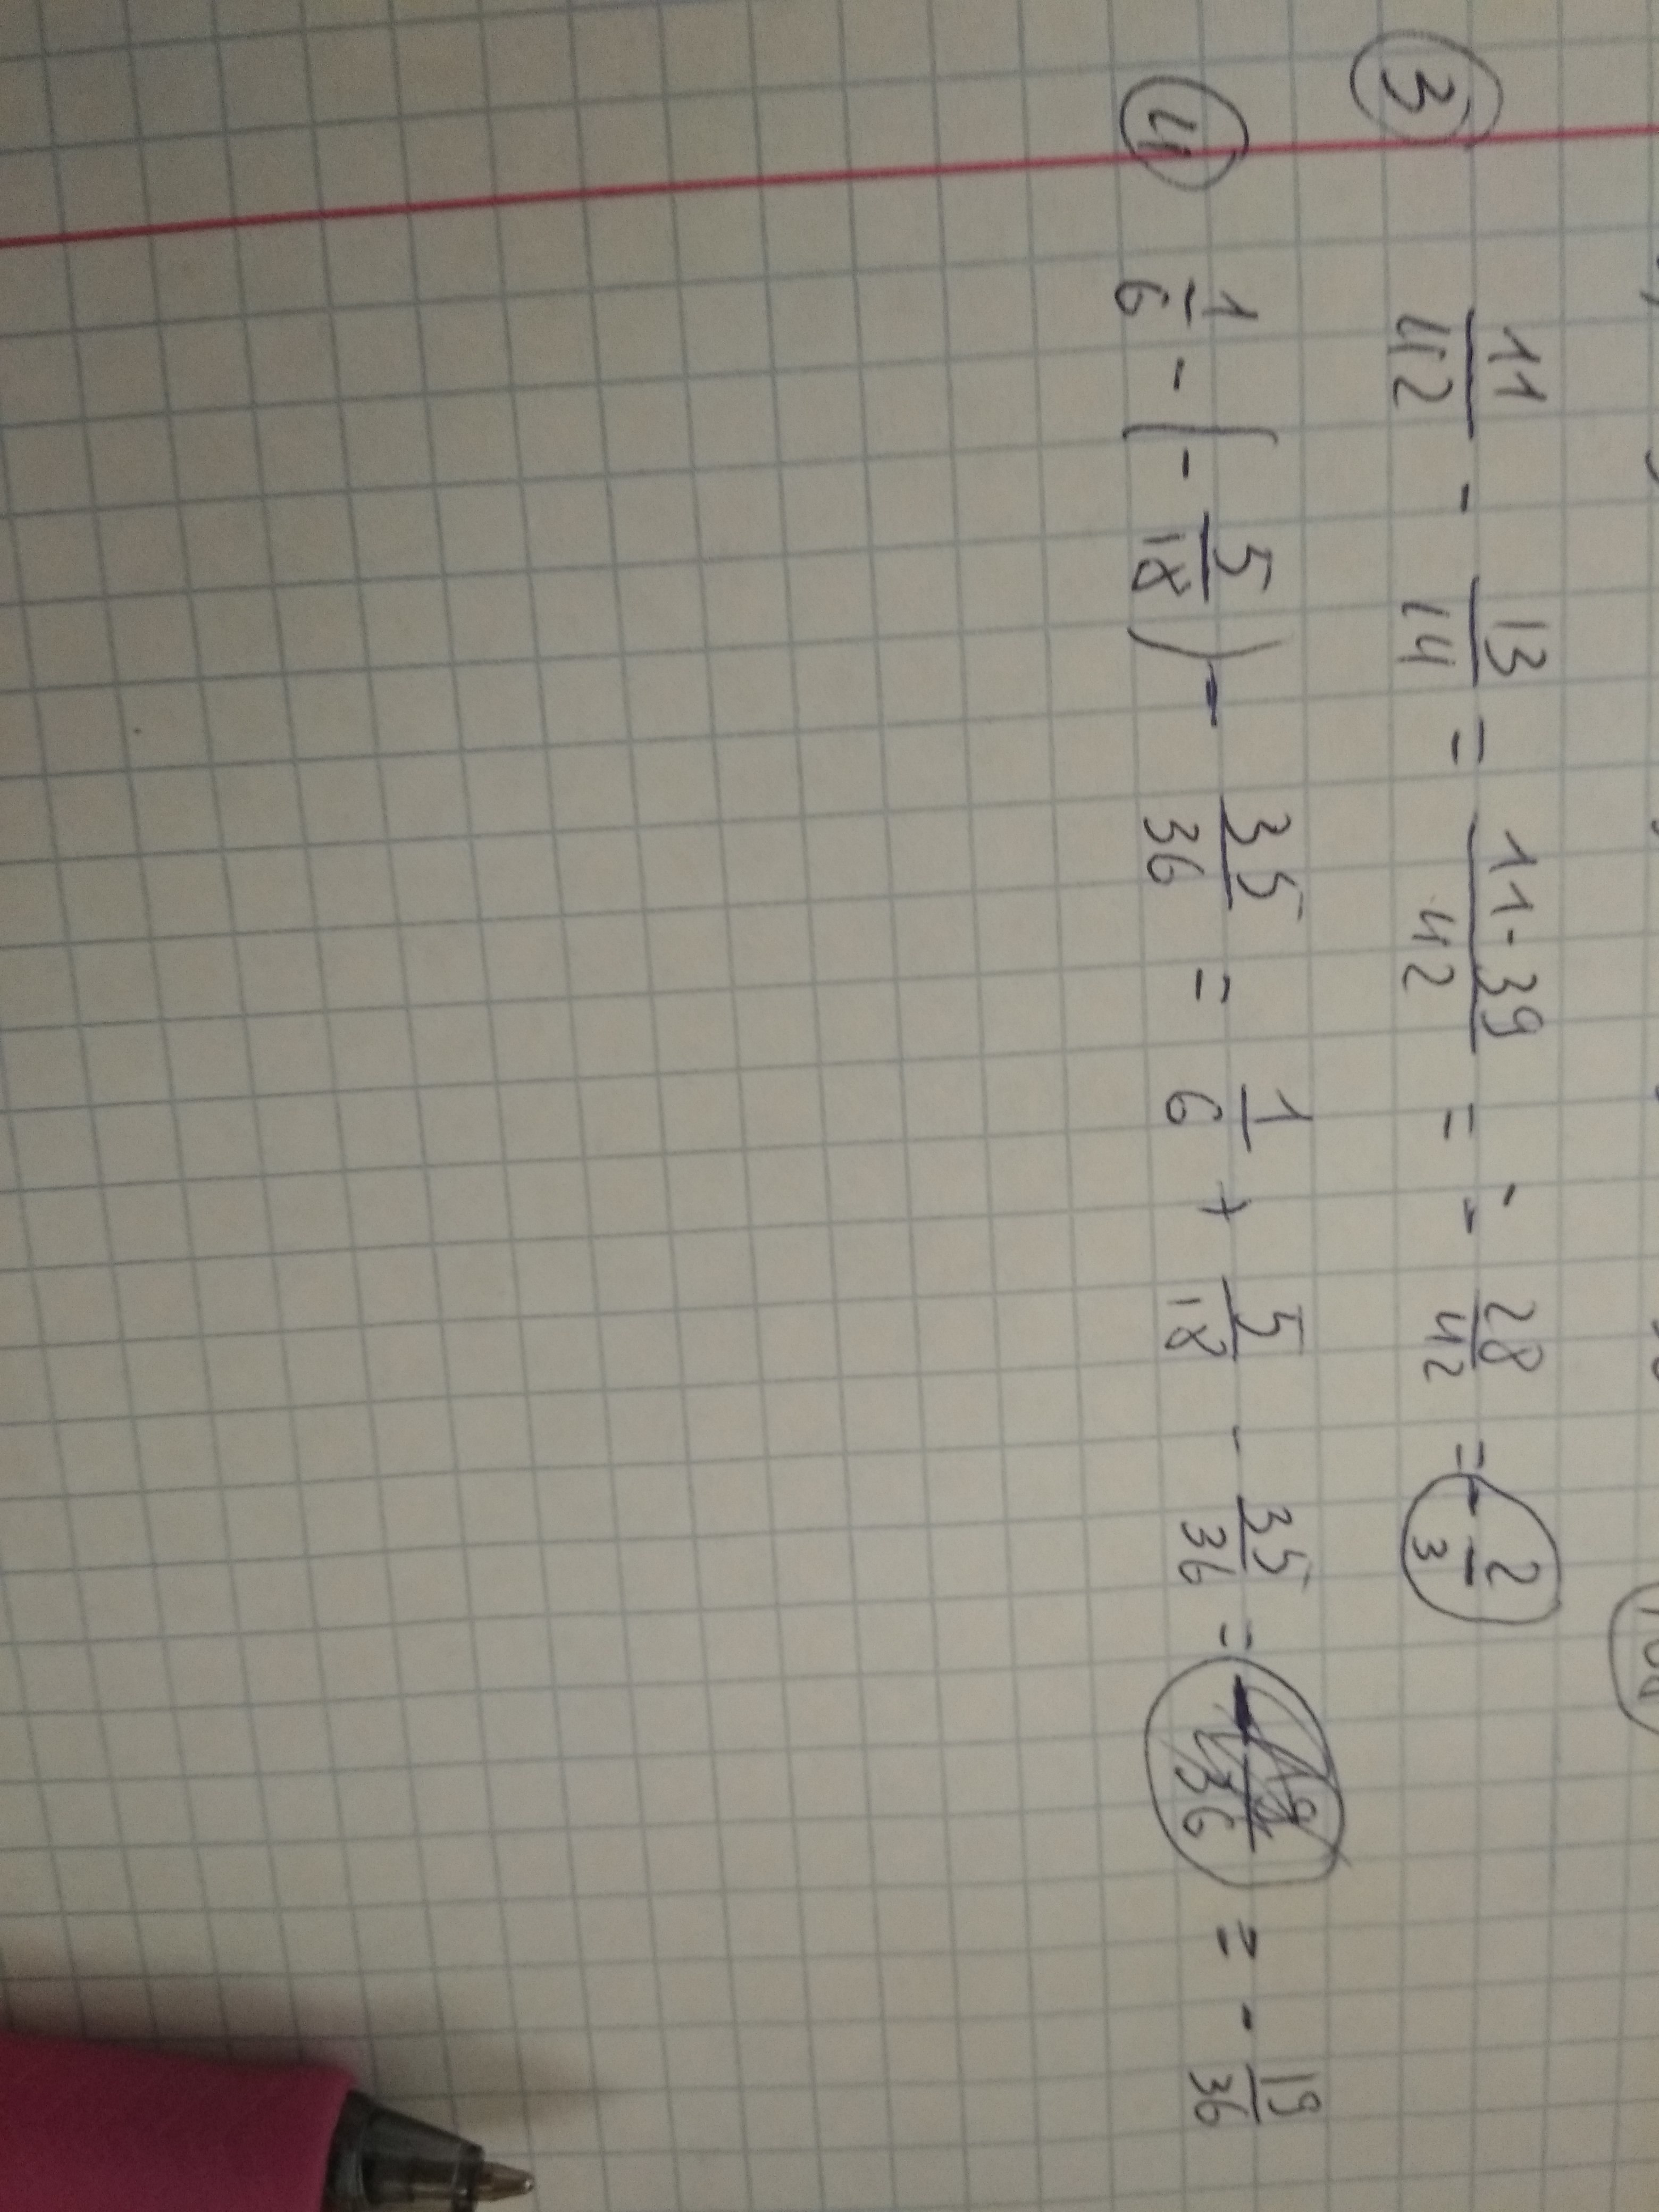 ③ 11/42 - 13/14 = 11-39/42 = - 28/42 = - 2/3
④ 1/6 - (- 5/18) - 35/36 = 1/6 + 5/18 - 35/36 = = - 19/36